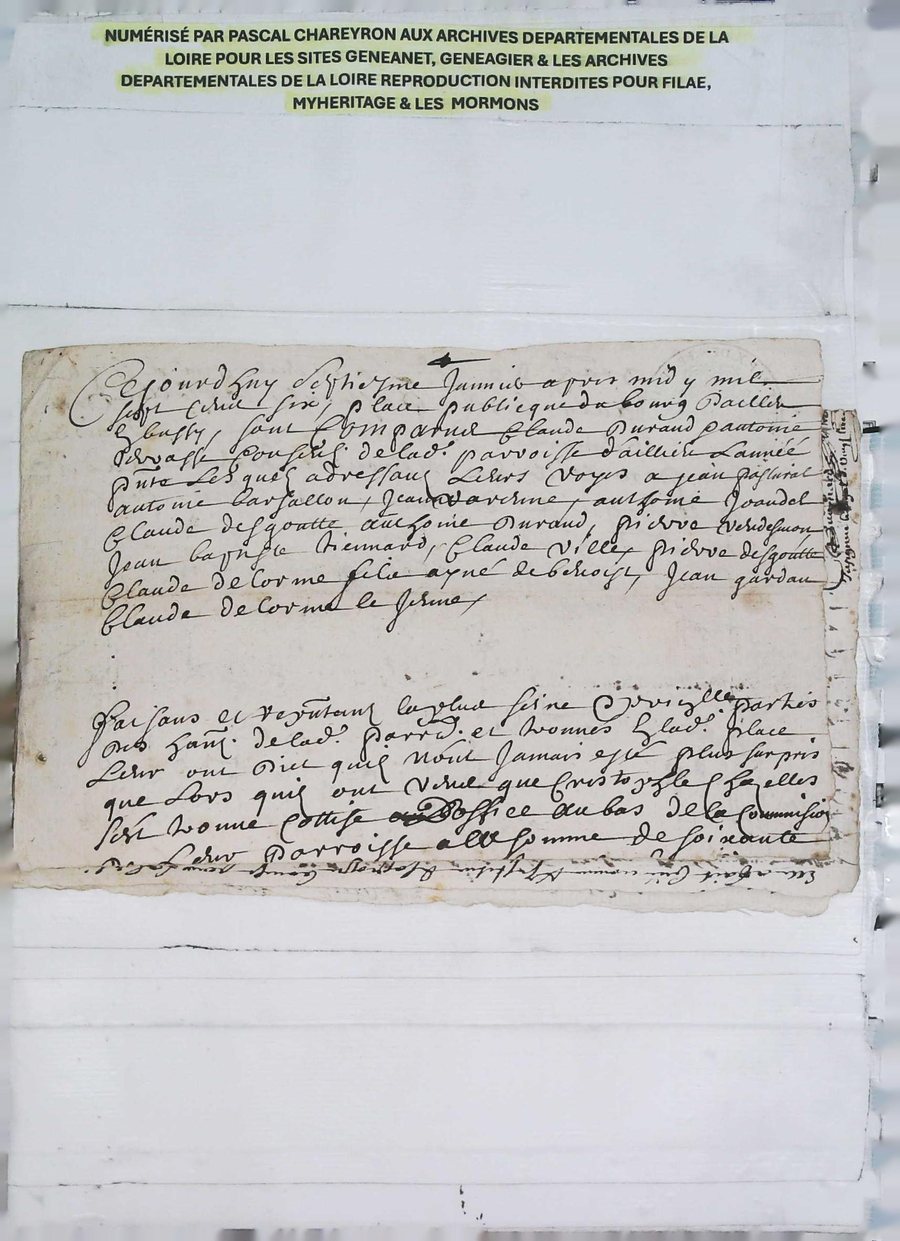 NUMÉRISÉ PAR PASCAL CHAREYRON AUX ARCHIVES DEPARTEMENTALES DE LA
LOIRE POUR LES SITES GENEANET, GENEAGIER & LES ARCHIVES
DEPARTEMENTALES DE LA LOIRE REPRODUCTION INTERDITES POUR FILAE,
MYHERITAGE & LES MORMONS
Cejourdhuy septiesme Janvier apres midy mil
sept cens six, place publicque du bourg dallieu
& bussy, sont Comparus Claude Durand & antoine
consuls de lad. parroisse d'allieu Lannéé
pnte Lesquels adressans Leurs voyes a jean pastural
antoine barsallon, Jean varenne, anthoine Joandel
Claude desgoutte anthoine Durand, pierre
Jean baptiste Tiennard, Claude Ville, pierre desgoutte
Claude delorme fils ayné de benoist, Jean gardan
Claude delorme le Jeune
faisans et representans la plus seine partie
des hans. de lad. parroe. et trouvés lad. place
Leur ont dict quils nont Jamais esté plus surpris
que Lors quils ont veue que Cristophle Chazelles
sest trouvé Cottisé doffice au bas de la Commission
Leur parroisse a la somme de soixante